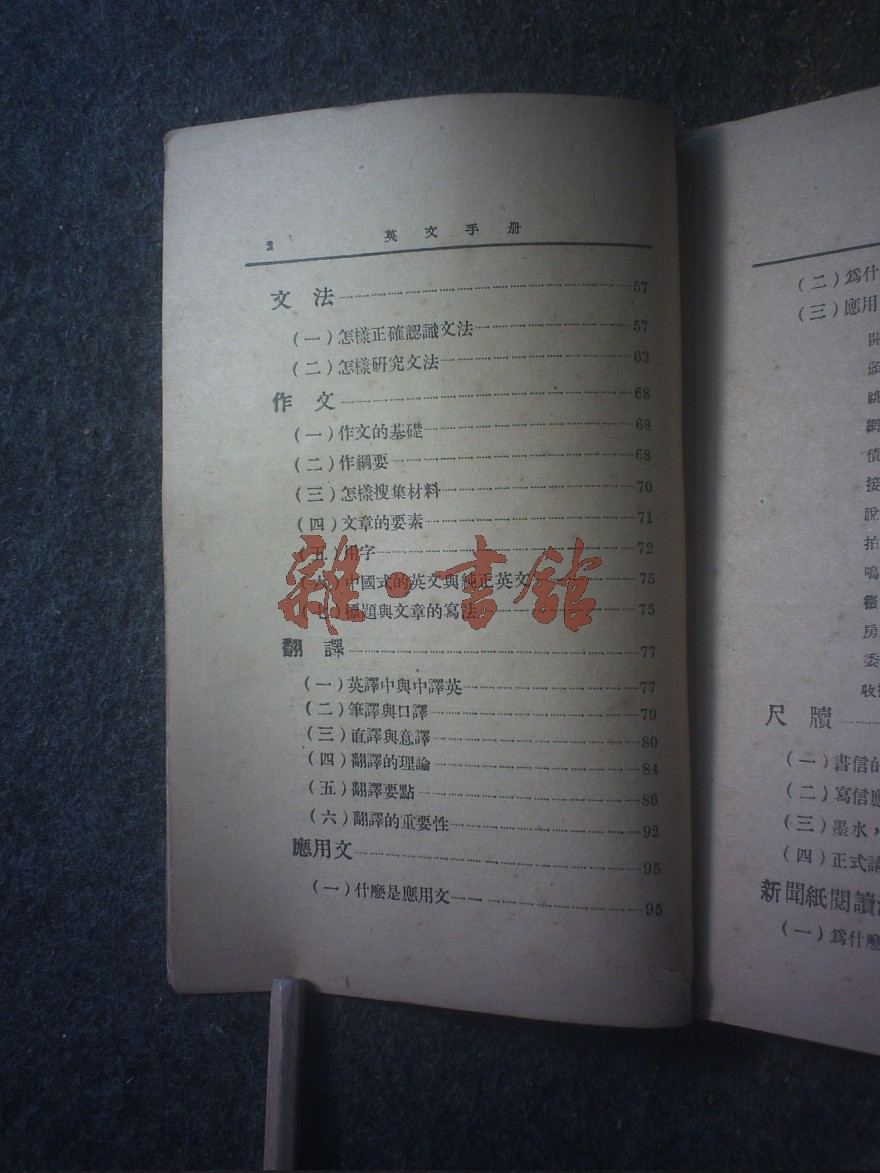 2 英文手册
文法 57
(一)怎樣正確認識文法 57
(二)怎樣研究文法 63
作文 68
(一)作文的基礎 68
(二)作綱要 68
(三)怎樣搜集材料 70
(四)文章的要素 71
(五)用字 72
(六)中國式的英文與純正英文 75
(七)標題與文章的寫法 75
翻譯 77
(一)英譯中與中譯英 77
(二)筆譯與口譯 79
(三)直譯與意譯 80
(四)翻譯的理論 84
(五)翻譯要點 86
(六)翻譯的重要性 92
應用文 95
(一)什麼是應用文 95
雜·書館
(二)爲什
(三)應用
開
頒
跳
綢
債
接
脫
拍
鳴
徵
房
委
收
尺牘
(一)書信的
(二)寫信應
(三)墨水，
(四)正式請
新聞紙閱讀
(一)爲什麼